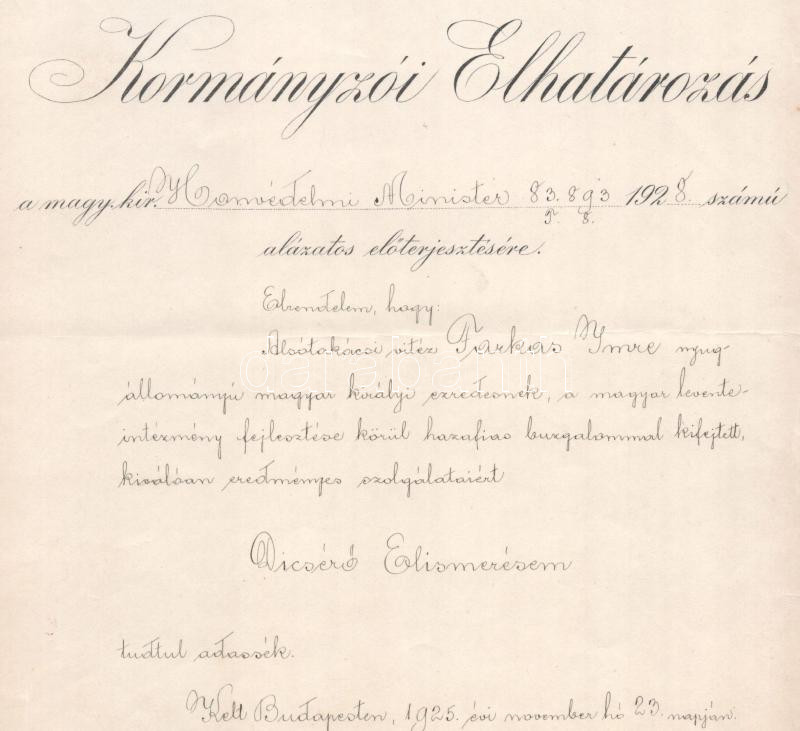 Kormányzói Elhatározás
a magy. kir. Honvédelmi Minister 83.893 1928. számú
T. 8.
alázatos előterjesztésére.
Elrendelem, hogy:
Alsótakácsi vitéz Farkas Ymre nyug-
állományú magyar királyi ezredesnek, a magyar levente-
intézmény fejlesztése körül hazafias buzgalommal kifejtett,
kiválóan eredményes szolgálataiért
Dicsérő Elismerésem
tudtul adassék.
Kelt Budapesten, 1925. évi november hó 23. napján.